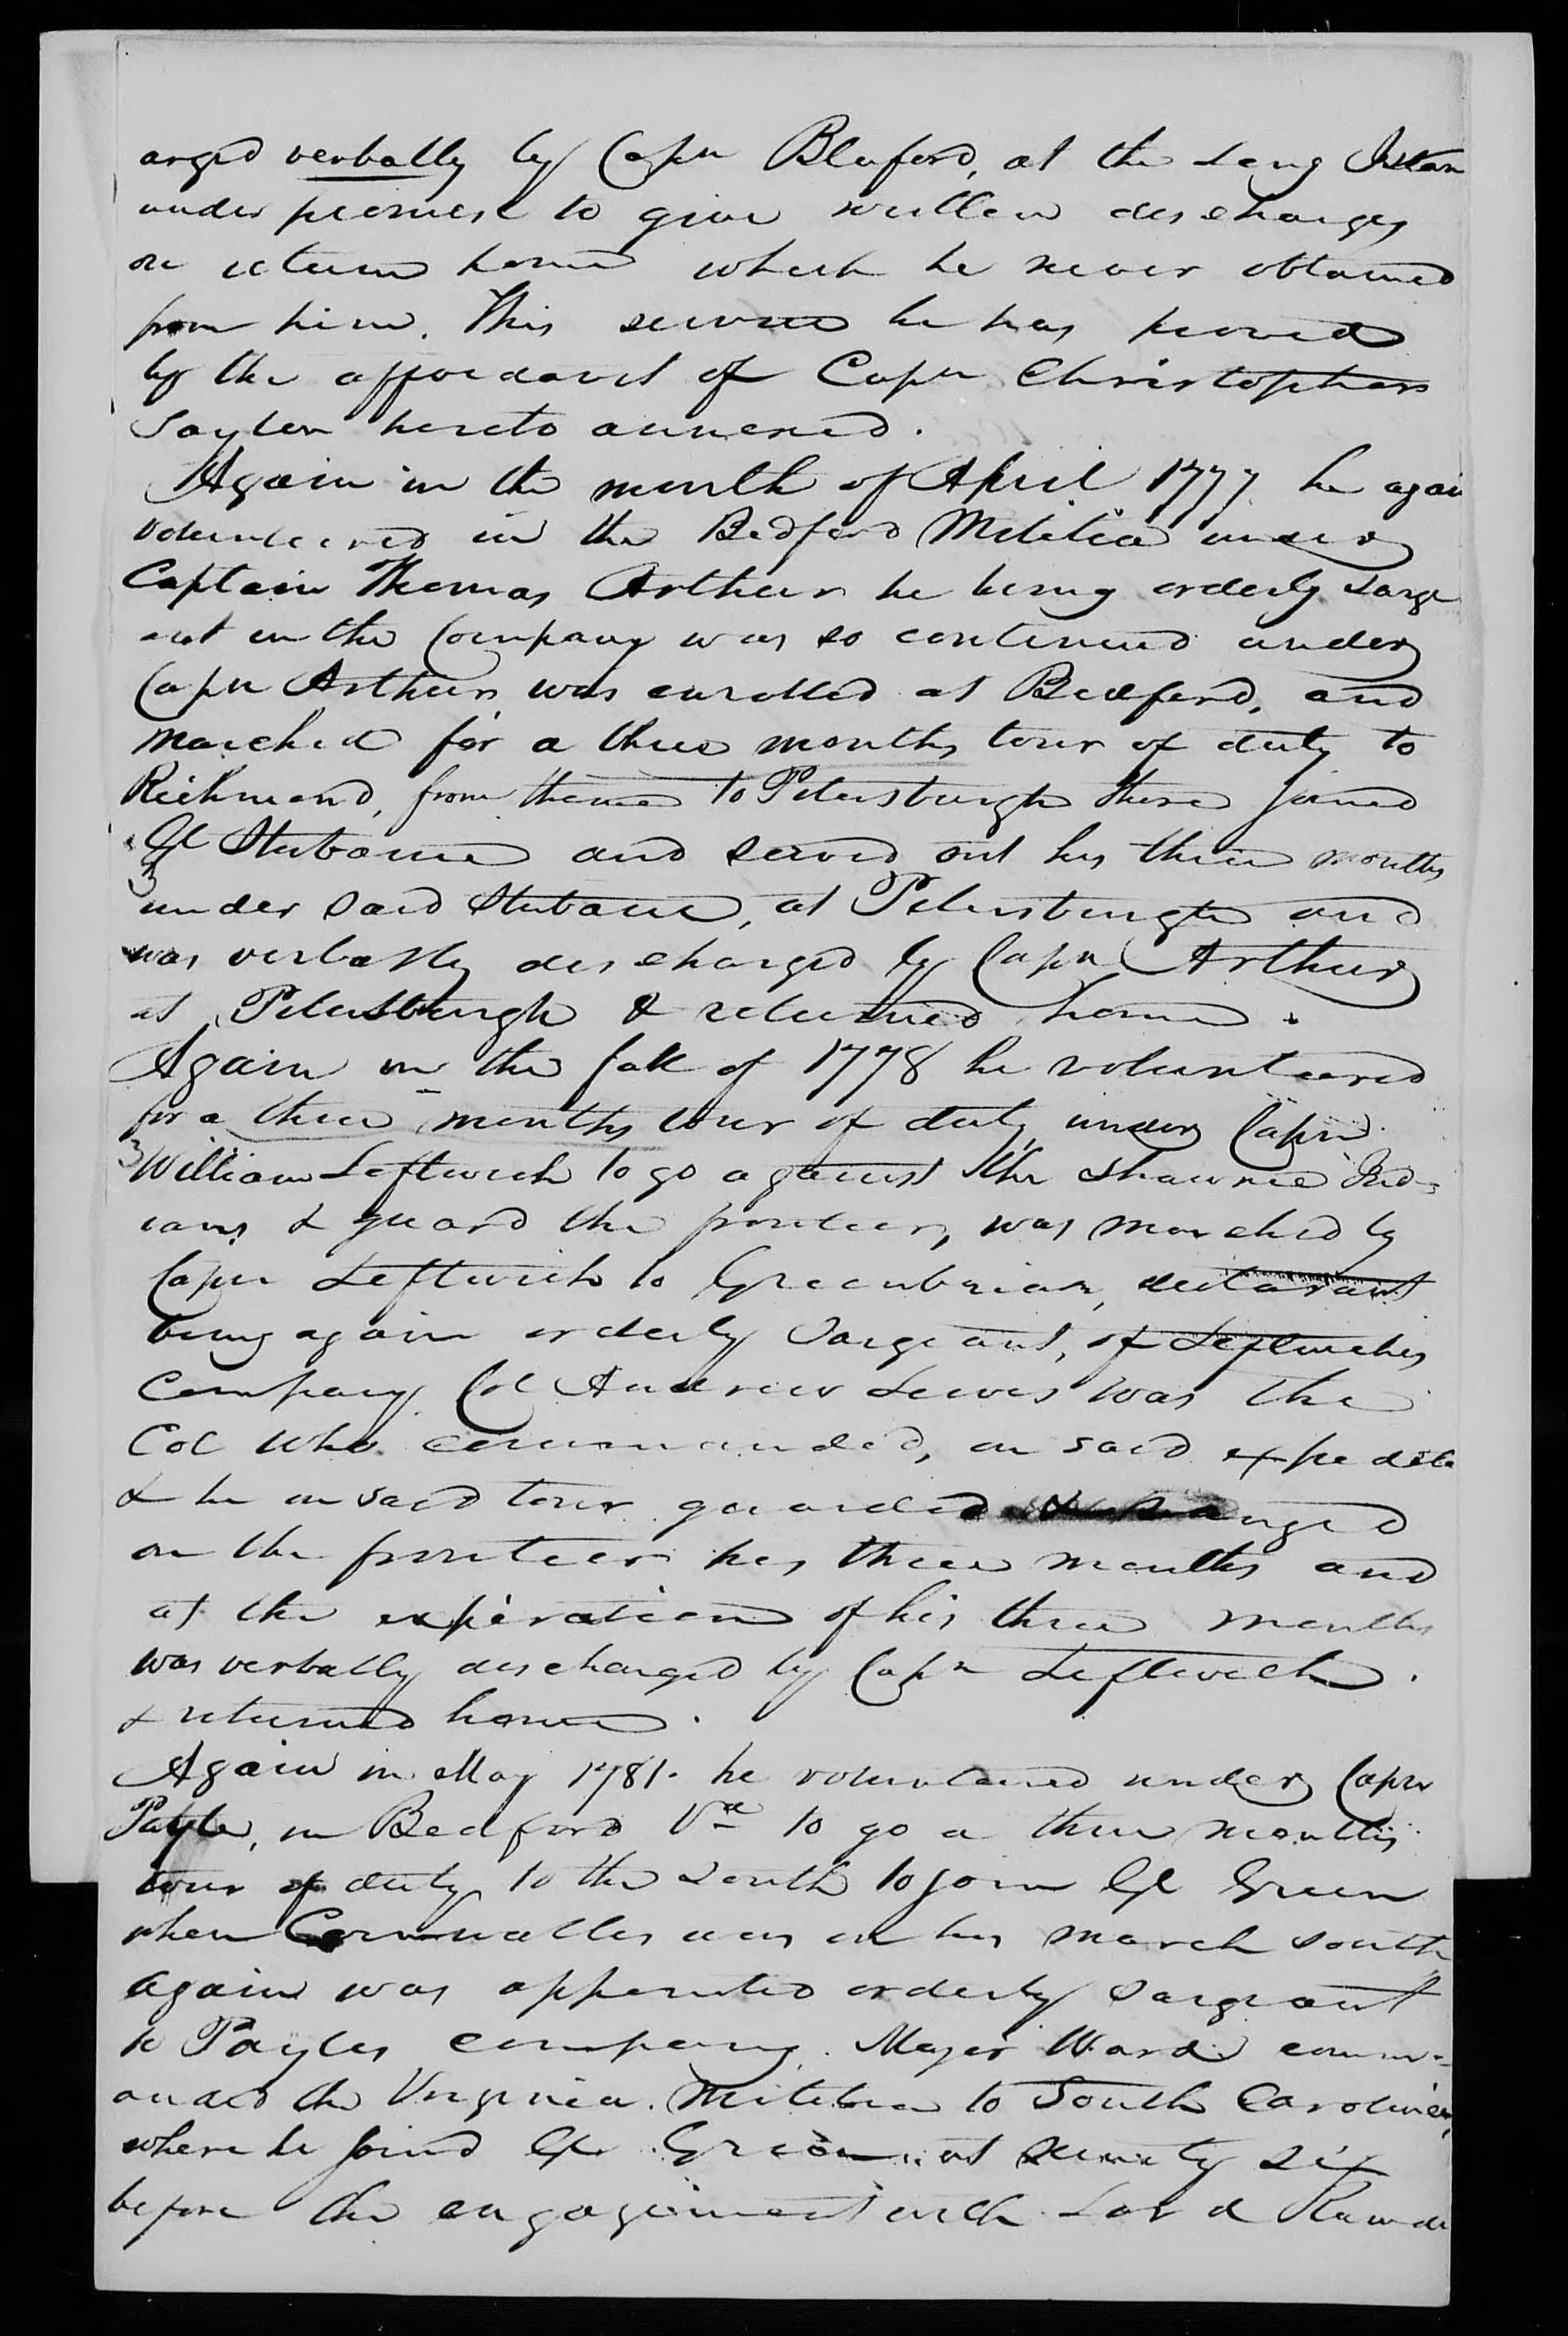 arged verbally by Capn Bluford, at the Long Islan
under promise to give written discharges
on return home which he never obtained
from him. This service he has proved
by the affidavit of Capn Christopher
Sayler hereto annexed.
Again in the month of April 1777 he again
volunteered in the Bedford Militia under
Captain Thomas Arthur he being orderly Sarge
ant in the Company was so continued under
Capn Arthur, was enrolled at Bedford, and
marched for a three months tour of duty to
Richmond, from thence to Petersburgh there joined
Gl Stubane and served out his three months
3
under said Stubane, at Petersburgh and
was verbally discharged by Capn Arthur
at Petersburgh & returned home.
Again in the fall of 1778 he volunteered
for a three months tour of duty under Capn
3
William Leftwich to go against the Shawnee Ind-
ians & guard the fronteer, was marched by
Capn Leftwich to Greenbriar, declarant
being again orderly Sargeant, of Leftwiches
Company Col Andrew Lewis was the
Col who commanded, on said expedit
& he on said tour guarded & ranged
on the fronteer his three months and
at the expiration of his three months
was verbally discharged by Capn Leftwich.
& returned home.
Again in May 1781. he voluntered under Capn
in Bedford Va to go a three months
tour of duty to the South to join Gl Green
when Cornwalles was on his march south
again was appointed orderly Sargeant
to Payles company. Major Ward comm-
anded the Virginia Militia to South Carolinea,
where he joind Gl Green at ninety six
before the engagement with Lord Rawde